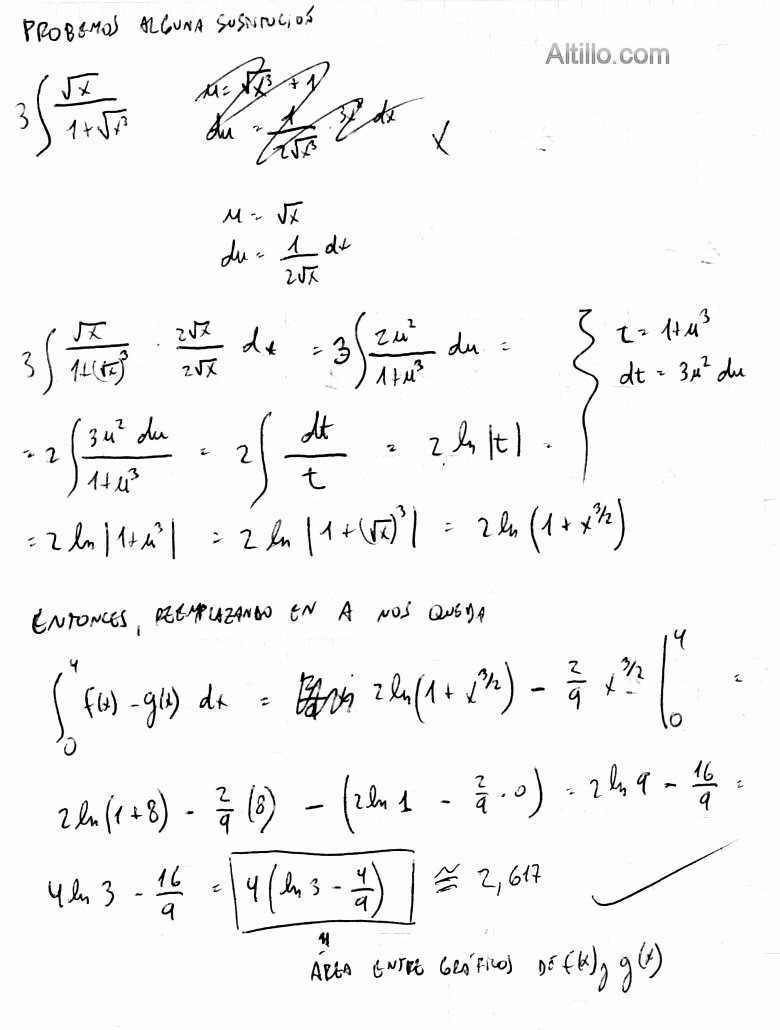 PROBEMOS ALGUNA SUSTITUCIÓN
Altillo.com
3∫ √x / (1+√x³)    u = √x³ + 1
du = 1/(2√x³) · 3x² dx    X
u = √x
du = 1/(2√x) dx
3∫ √x / (1+(√x)³) · 2√x / 2√x dx = 3∫ 2u² / (1+u³) du =    { t = 1+u³
dt = 3u² du
= 2∫ 3u² du / (1+u³) = 2∫ dt / t = 2 ln |t| =
= 2 ln |1+u³| = 2 ln |1+(√x)³| = 2 ln (1+x^(3/2))
ENTONCES, REEMPLAZANDO EN A NOS QUEDA
∫₀⁴ f(x) - g(x) dx = 2 ln(1+x^(3/2)) - 2/9 x^(3/2) |₀⁴ =
2 ln(1+8) - 2/9 (8) - (2 ln 1 - 2/9 · 0) = 2 ln 9 - 16/9 =
4 ln 3 - 16/9 = 4(ln 3 - 4/9) ≅ 2,617
ÁREA ENTRE GRÁFICOS DE f(x) y g(x)